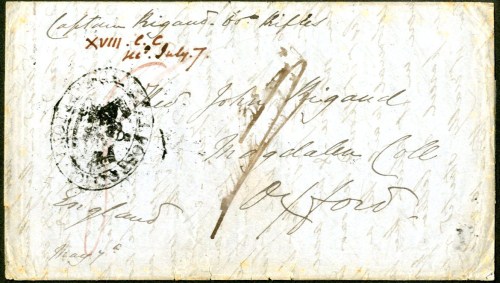 Captain Rigaud. 60th Rifles
XVIII. C.C.
July. 7.
Revd. John Rigaud
Magdalen Coll
Oxford.
England